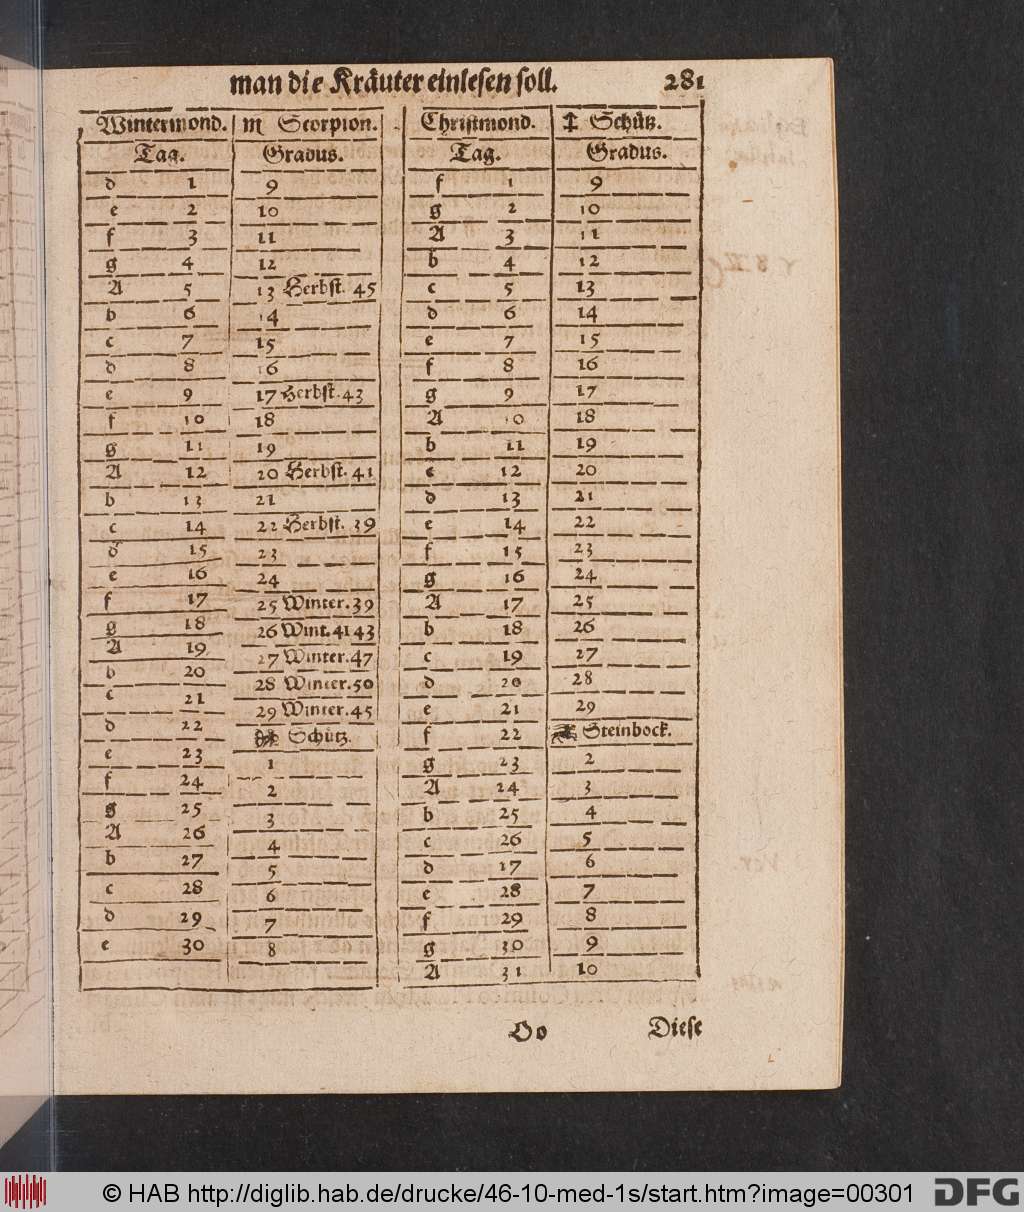 man die Kräuter einlesen soll. 281
Wintermond. ♏ Scorpion. Christmond. ♐ Schütz.
Tag. Gradus. Tag. Gradus.
d 1 9 f 1 9
e 2 10 g 2 10
f 3 11 A 3 11
g 4 12 b 4 12
A 5 13 Herbst. 45 c 5 13
b 6 14 d 6 14
c 7 15 e 7 15
d 8 16 f 8 16
e 9 17 Herbst. 43 g 9 17
f 10 18 A 10 18
g 11 19 b 11 19
A 12 20 Herbst. 41 c 12 20
b 13 21 d 13 21
c 14 22 Herbst. 39 e 14 22
d 15 23 f 15 23
e 16 24 g 16 24
f 17 25 Winter. 39 A 17 25
g 18 26 Wint. 41 43 b 18 26
A 19 27 Winter. 47 c 19 27
b 20 28 Winter. 50 d 20 28
c 21 29 Winter. 45 e 21 29
d 22 Schütz. f 22 Steinbock.
e 23 1 g 23 2
f 24 2 A 24 3
g 25 3 b 25 4
A 26 4 c 26 5
b 27 5 d 17 6
c 28 6 e 28 7
d 29 7 f 29 8
e 30 8 g 30 9
A 31 10
Oo Diese
© HAB http://diglib.hab.de/drucke/46-10-med-1s/start.htm?image=00301 DFG